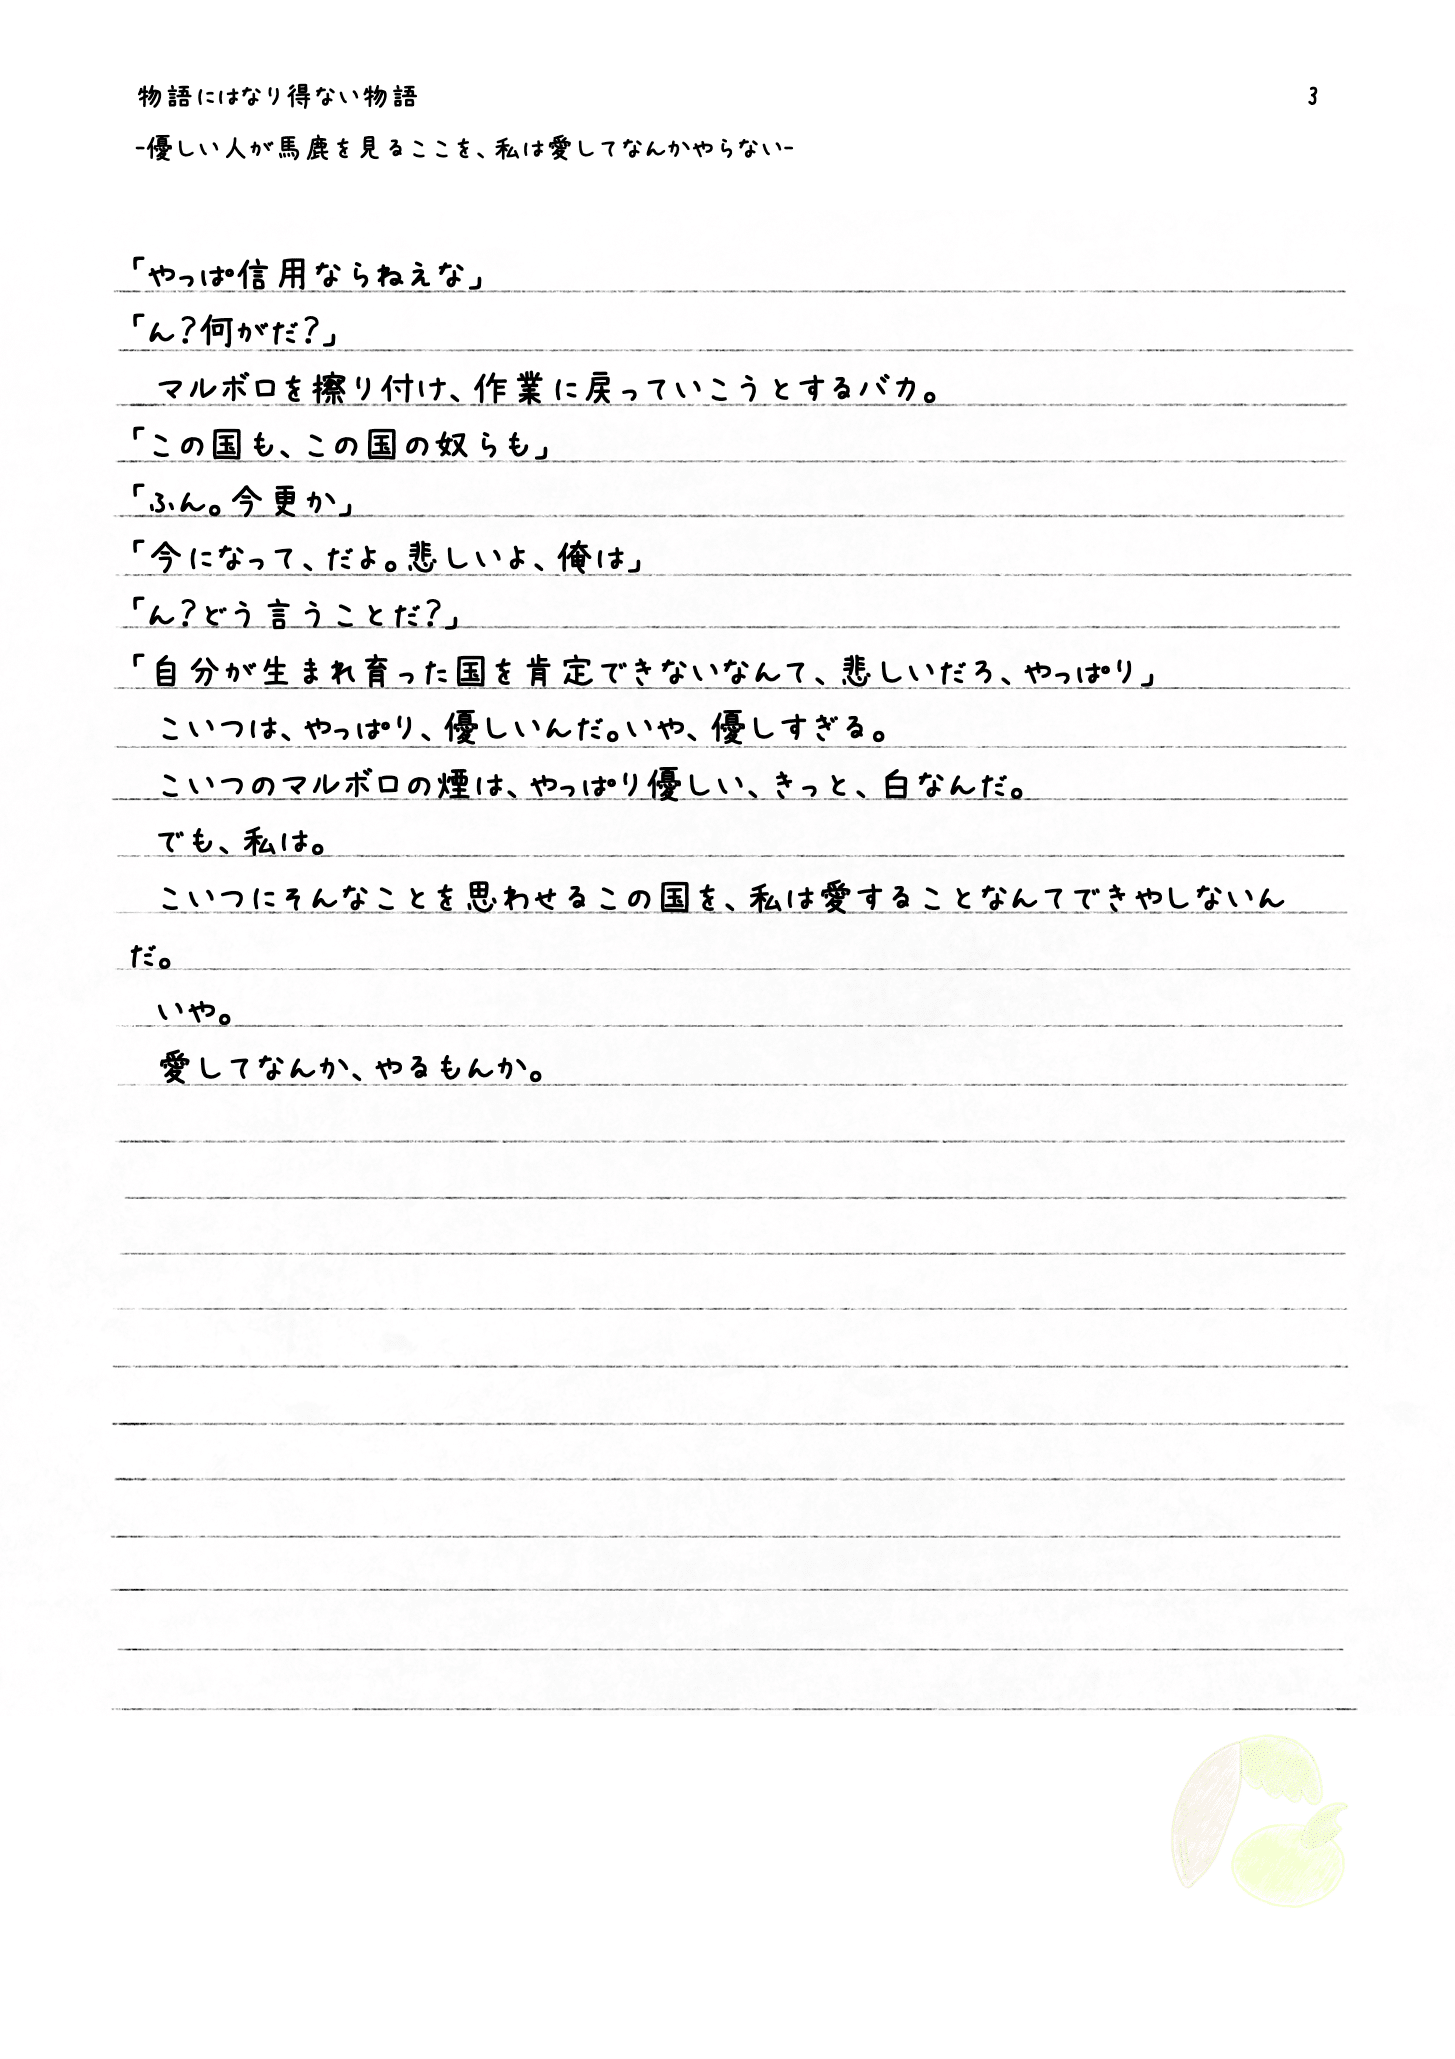 物語にはなり得ない物語
3
-優しい人が馬鹿を見るここを、私は愛してなんかやらない-
「やっぱ信用ならねえな」
「ん?何がだ?」
　マルボロを擦り付け、作業に戻っていこうとするバカ。
「この国も、この国の奴らも」
「ふん。今更か」
「今になって、だよ。悲しいよ、俺は」
「ん?どう言うことだ?」
「自分が生まれ育った国を肯定できないなんて、悲しいだろ、やっぱり」
　こいつは、やっぱり、優しいんだ。いや、優しすぎる。
　こいつのマルボロの煙は、やっぱり優しい、きっと、白なんだ。
　でも、私は。
　こいつにそんなことを思わせるこの国を、私は愛することなんてできやしないん
だ。
　いや。
　愛してなんか、やるもんか。